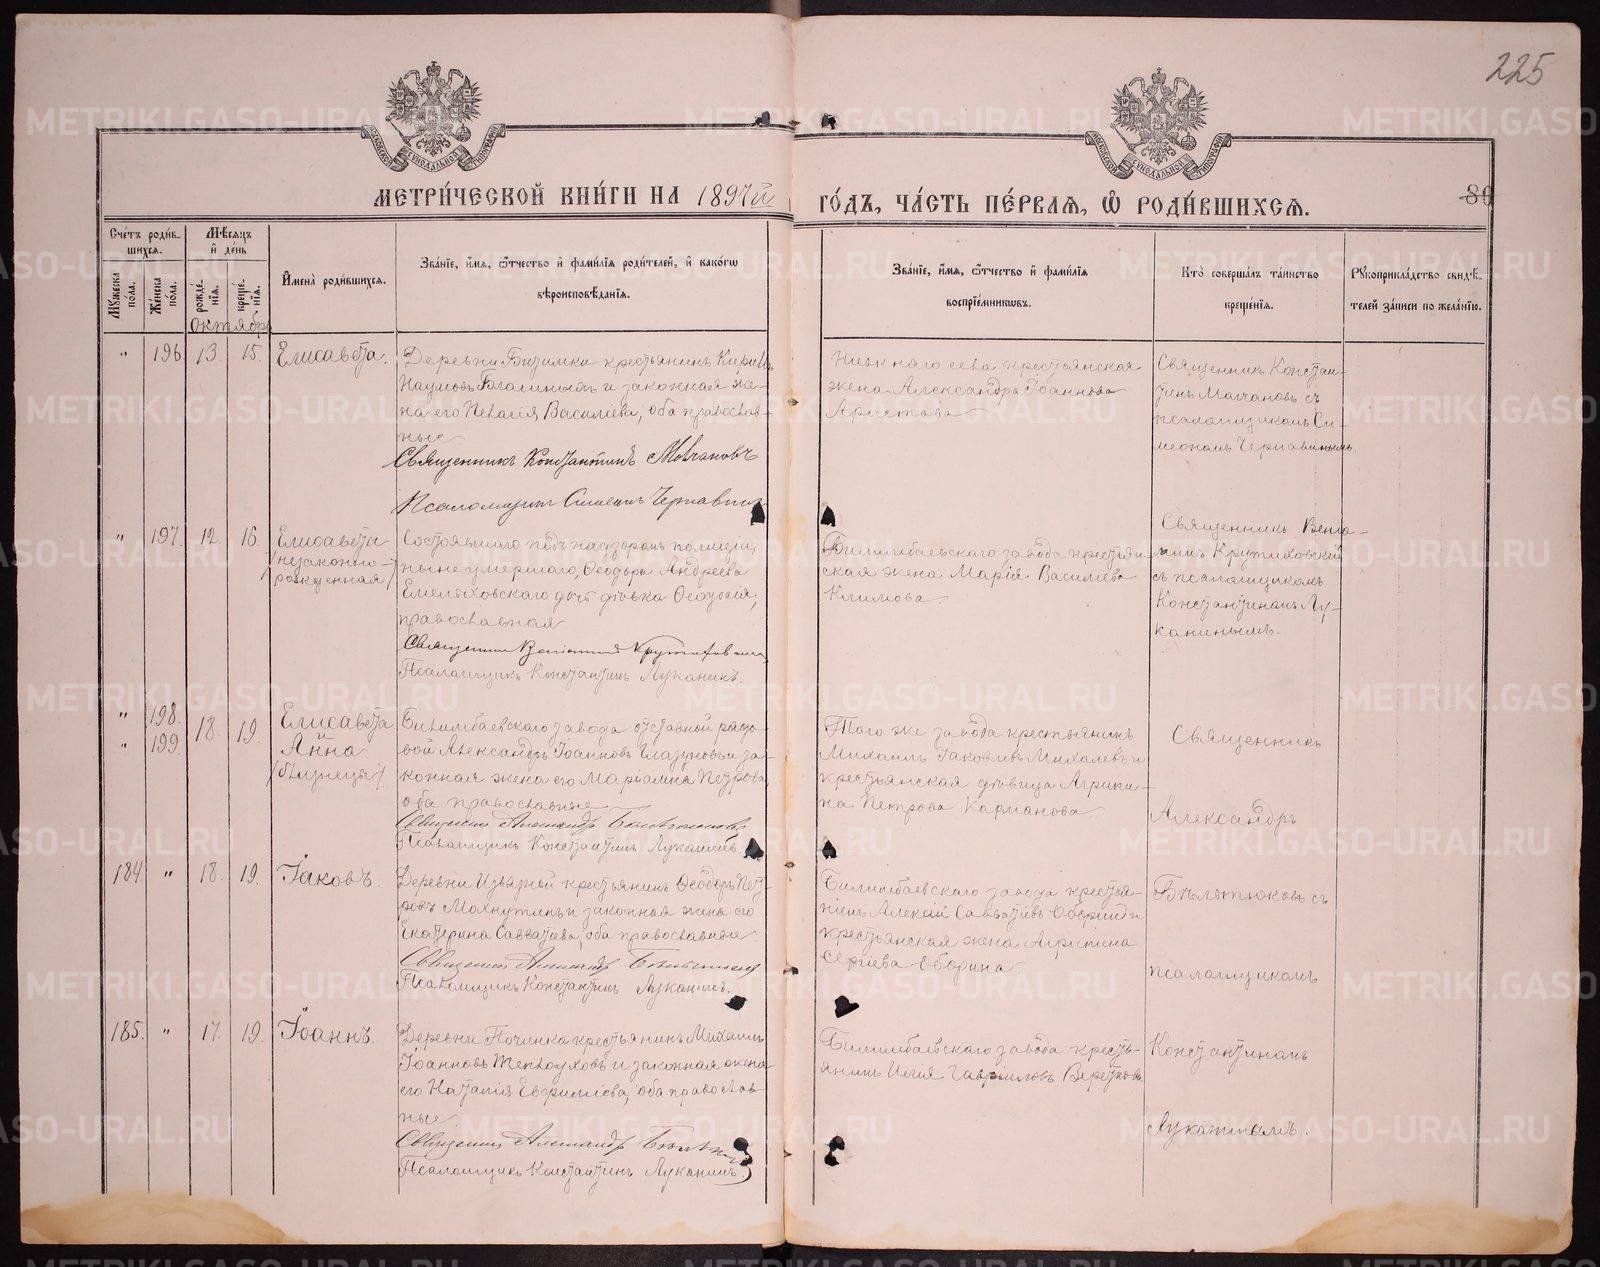 225
МОСКОВСКОЙ СѴНОДАЛЬНОЙ ТИПОГРАФІИ
МОСКОВСКОЙ СѴНОДАЛЬНОЙ ТИПОГРАФІИ
МЕТРИ́ЧЕСКОЙ КНИ́ГИ НА 1897й
ГО́ДЪ, ЧА́СТЬ ПЕ́РВАѦ, Ѡ҆ РОДИ́ВШИХСѦ.
80
Сче́тъ роди́в-
шихсѧ.
Мꙋ́жеска по́ла.
Же́нска по́ла.
Мѣ́сѧцъ
и҆ де́нь
рожде́-
нїѧ.
креще́-
нїѧ.
Октябрь
И҆мена̀ роди́вшихсѧ.
Зва́нїе, и҆́мѧ, ѻ҆́тчество и҆ фами́лїѧ роди́телей, и҆ како́гѡ
вѣроисповѣ́данїѧ.
Зва́нїе, и҆́мѧ, ѻ҆́тчество и҆ фами́лїѧ
воспрїе́мникѡвъ.
Кто̀ соверша́лъ та́инство
креще́нїѧ.
Рꙋкоприкла́дство свидѣ́-
телей за́писи по жела́нїю.
" 196. 13. 15. Елисавета.
Деревни Битимки крестьянинъ Кириллъ
Наумовъ и законная же-
на его Пелагія Василіева, оба православ-
ные
Священникъ Константинъ Молчановъ
Псаломщикъ Симеонъ Чернавинъ
крестьянская
жена Александра Іоаннова
Аристова
Священникъ Констан-
тинъ Молчановъ съ
псаломщикомъ Си-
меономъ Чернавинымъ
" 197. 12. 16. Елисавета
/незаконно-
рожденная/
Состоявшаго подъ надзоромъ полиціи,
ныне умершаго, Ѳеодора Андреева
дочь дѣвка Ѳеодосія,
православная
Священникъ Веніаминъ
Псаломщикъ Константинъ Луканинъ.
Билимбаевскаго завода крестьян-
ская жена Марія Василіева
Климова.
Священникъ Веніа-
минъ
съ псаломщикомъ
Константиномъ Лу-
канинымъ.
" 198. 18. 19. Елисавета
" 199. и Анна
/близнецы/
Билимбаевскаго завода отставной рядо-
вой Александръ Іоанновъ Глазуновъ и за-
конная жена его Маріамна Петрова,
оба православные
Священникъ Александръ
Псаломщикъ Константинъ Луканинъ.
Того же завода крестьянинъ
Михаилъ Іаковлевъ Михалевъ и
крестьянская дѣвица Агрипи-
на Петрова Карманова
Священникъ
Александръ
184. " 18. 19. Іаковъ.
Деревни Извѣрной крестьянинъ Ѳеодоръ Пет-
ровъ Махнуткинъ и законная жена его
Екатерина Савватіева, оба православные
Священникъ Александръ
Псаломщикъ Константинъ Луканинъ.
Билимбаевскаго завода крестья-
нинъ Алексій Савватіевъ Оборинъ и
крестьянская жена Агрипина
Сергіева Оборина
съ
псаломщикомъ
185. " 17. 19. Іоаннъ.
Деревни Починка крестьянинъ Михаилъ
Іоанновъ и законная жена
его Наталія Евфиміева, оба православ-
ные
Священникъ Александръ
Псаломщикъ Константинъ Луканинъ.
Билимбаевскаго завода кресть-
янинъ Илія Гавріиловъ
Константиномъ
Луканинымъ.
METRIKI.GASO-URAL.RU